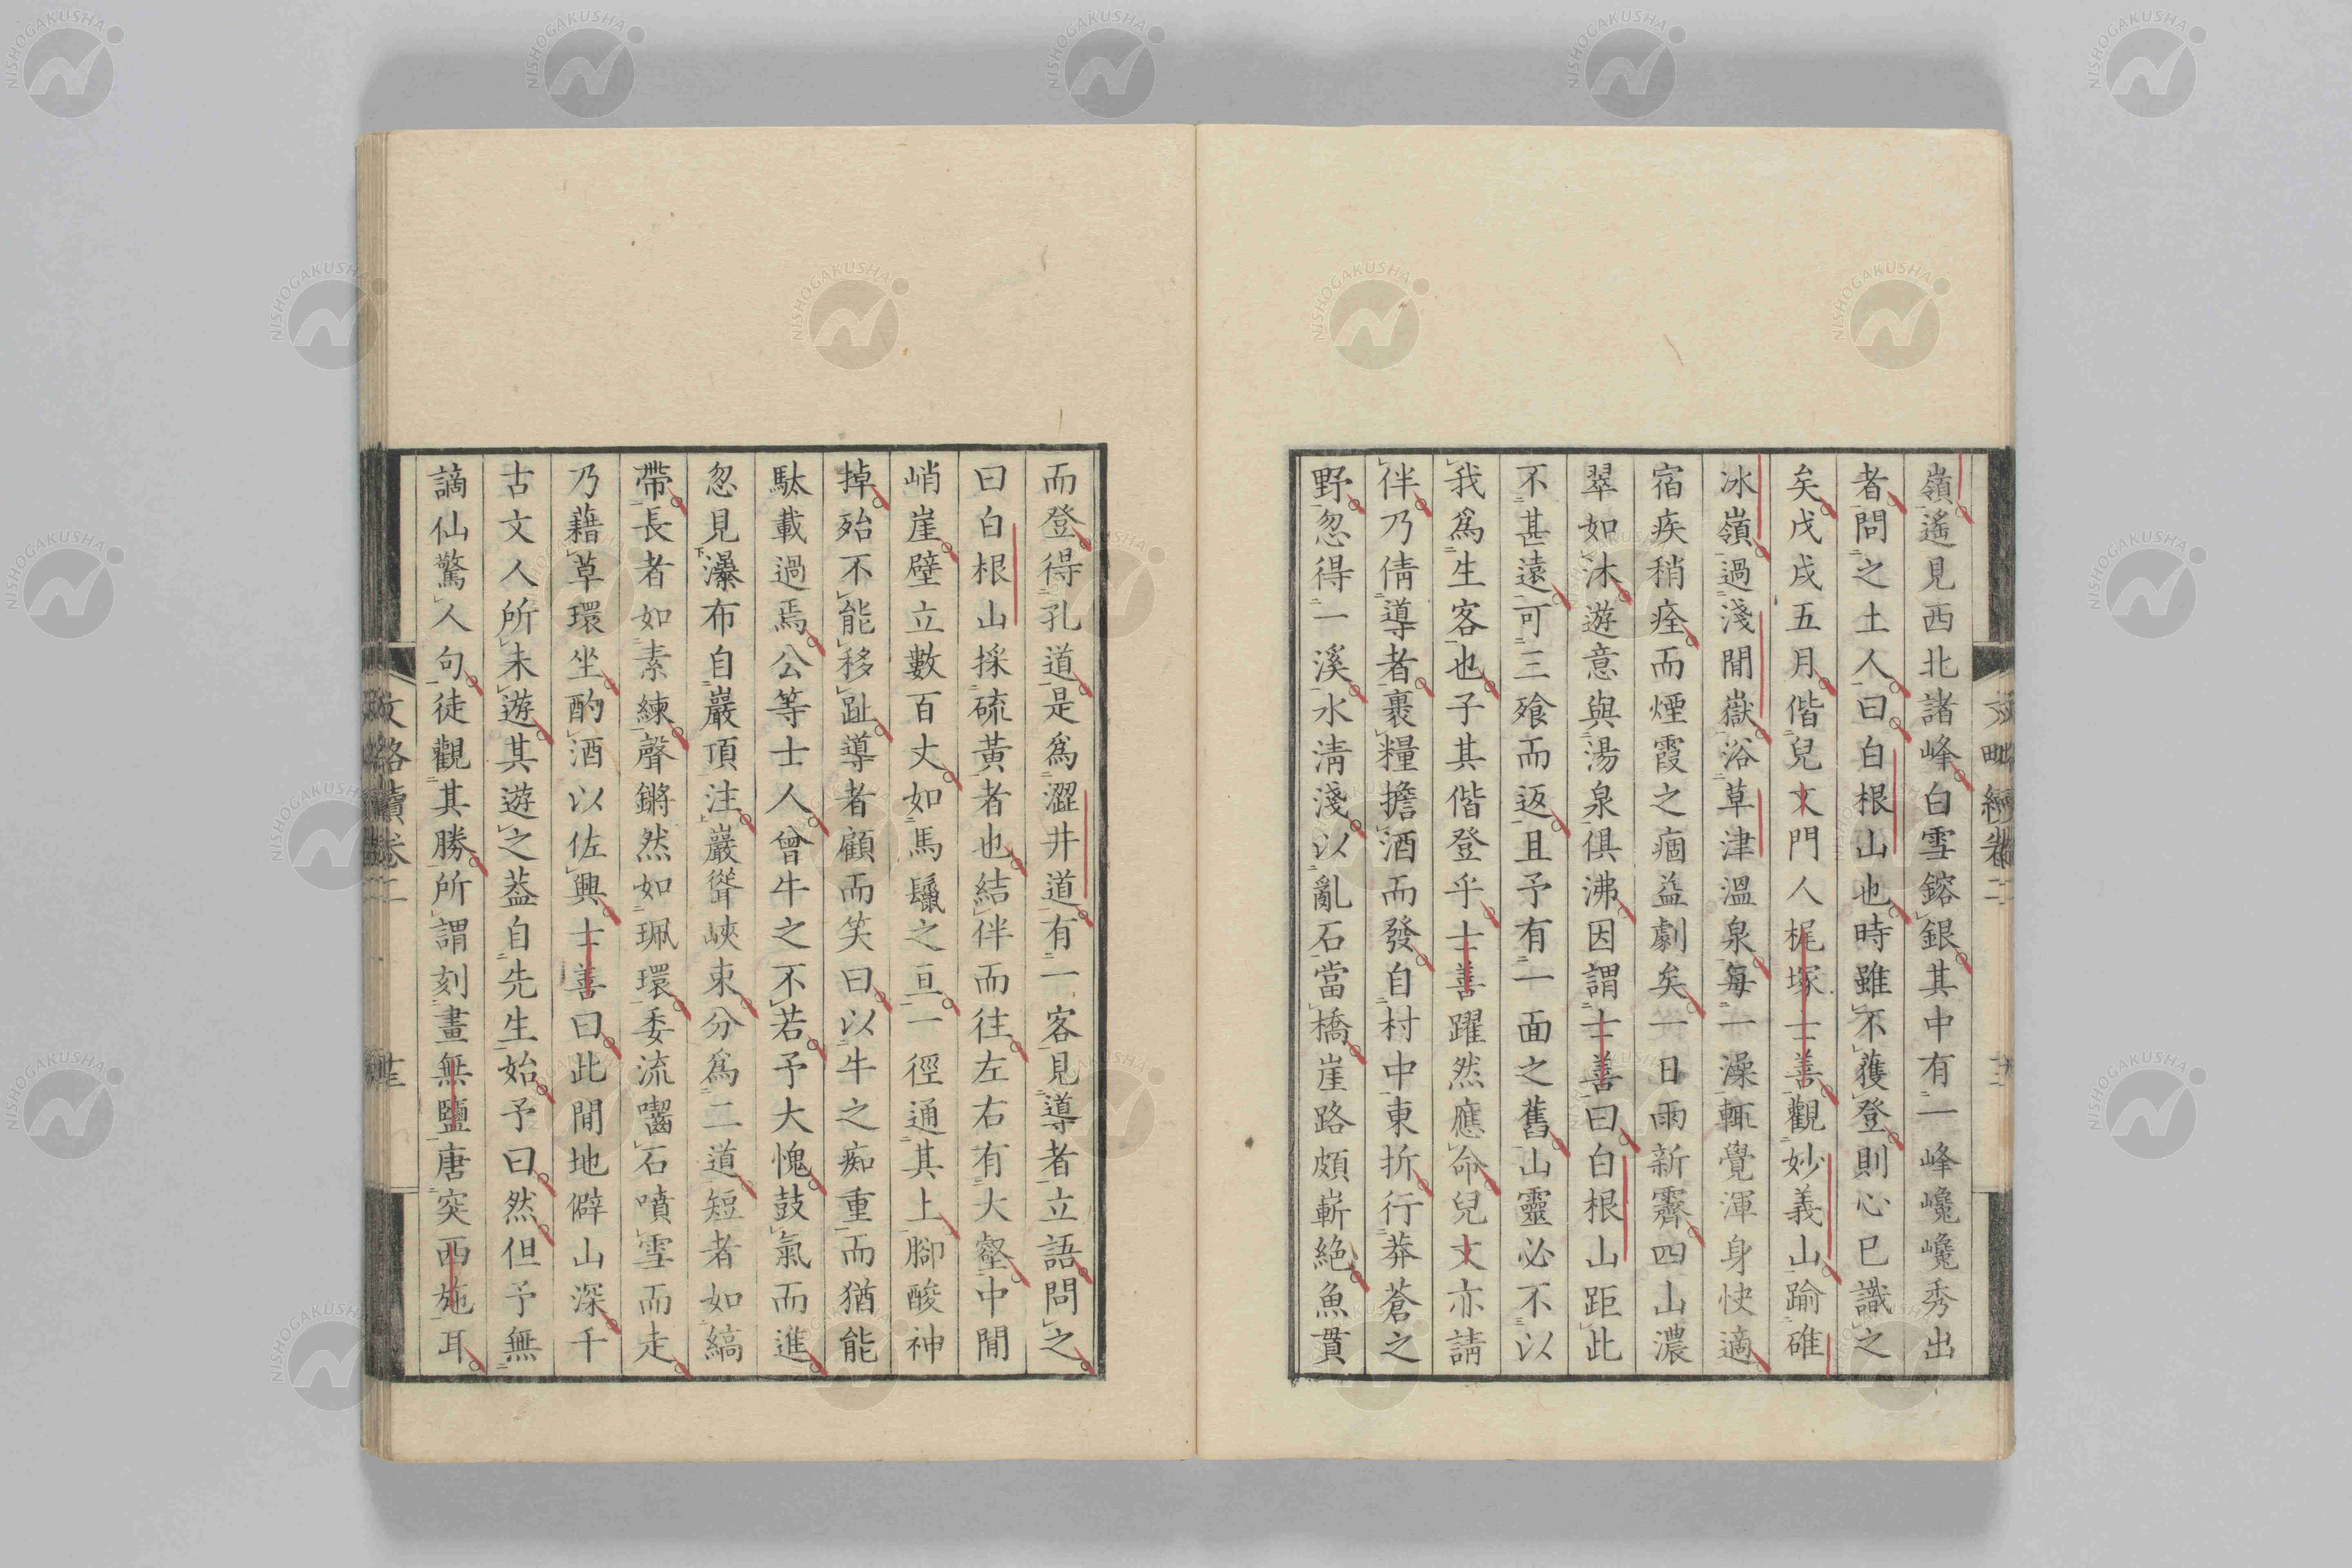 嶺遙見西北諸峰白雪鎔銀其中有一峰巉巉秀出
者問之土人曰白根山也時雖不獲登則心已識之
矣戊戌五月偕兒文門人梶塚士善觀妙義山踰碓
冰嶺過淺間嶽浴草津溫泉每一澡輒覺渾身快適
宿疾稍痊而煙霞之痼益劇矣一日雨新霽四山濃
翠如沐遊意與湯泉俱沸因謂士善曰白根山距此
不甚遠可三飱而返且予有一面之舊山靈必不以
我爲生客也子其偕登乎士善躍然應命兒文亦請
伴乃倩導者裹糧擔酒而發自村中東折行莽蒼之
野忽得一溪水淸淺以亂石當橋崖路頗嶄絶魚貫
而登得孔道是爲澀井道有一客見導者立語問之
曰白根山採硫黃者也結伴而往左右有大壑中間
峭崖壁立數百丈如馬鬣之亘一徑通其上腳酸神
掉殆不能移趾導者顧而笑曰以牛之痴重而猶能
馱載過焉公等士人曾牛之不若予大愧鼓氣而進
忽見瀑布自巖頂注巖聳峽束分爲二道短者如縞
帶長者如素練聲鏘然如珮環委流囓石噴雪而走
乃藉草環坐酌酒以佐興士善曰此間地僻山深千
古文人所未遊其遊之葢自先生始予曰然但予無
謫仙驚人句徒觀其勝所謂刻畫無鹽唐突西施耳
NISHOGAKUSHA